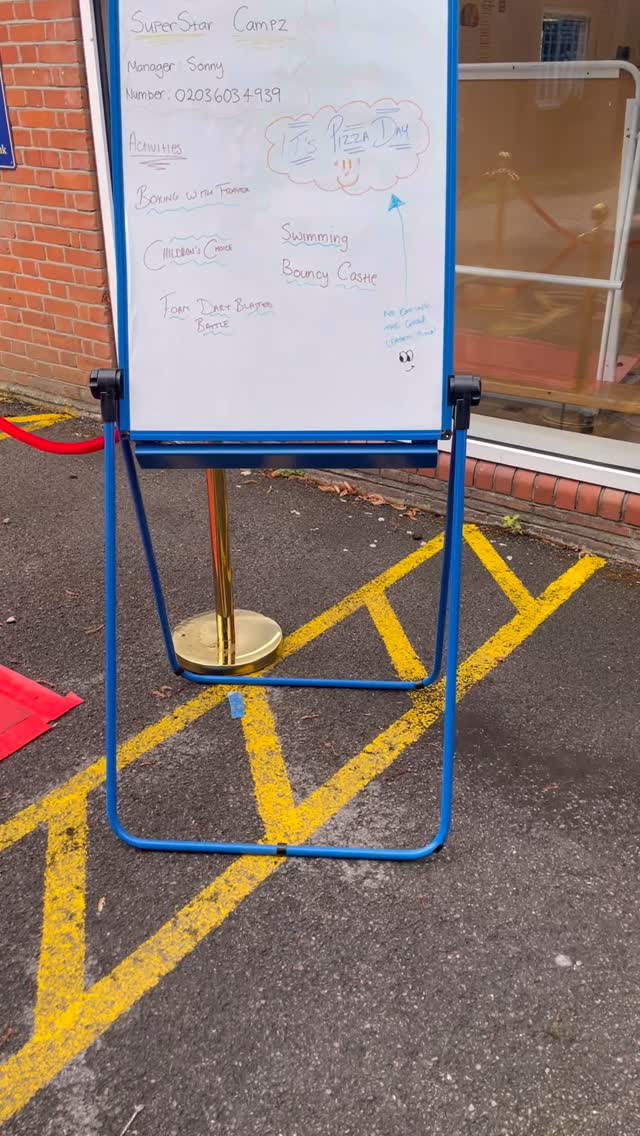 SuperStar Campz
Manager Sonny
Number: 02036034939
Activities
It's Pizza Day
Boxing with
Children's Choice
Swimming
Bouncy Castle
Foam Dart Blaster
Battle